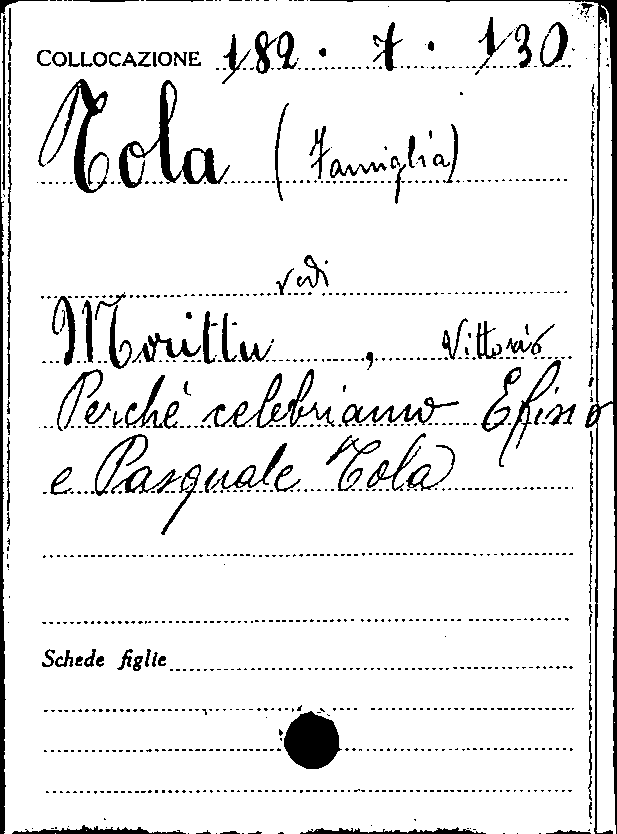 COLLOCAZIONE 182. 7. 130
Tola (Famiglia)
vedi
Morittu, Vittorio
Perché celebriamo Efisio
e Pasquale Tola
Schede figlie